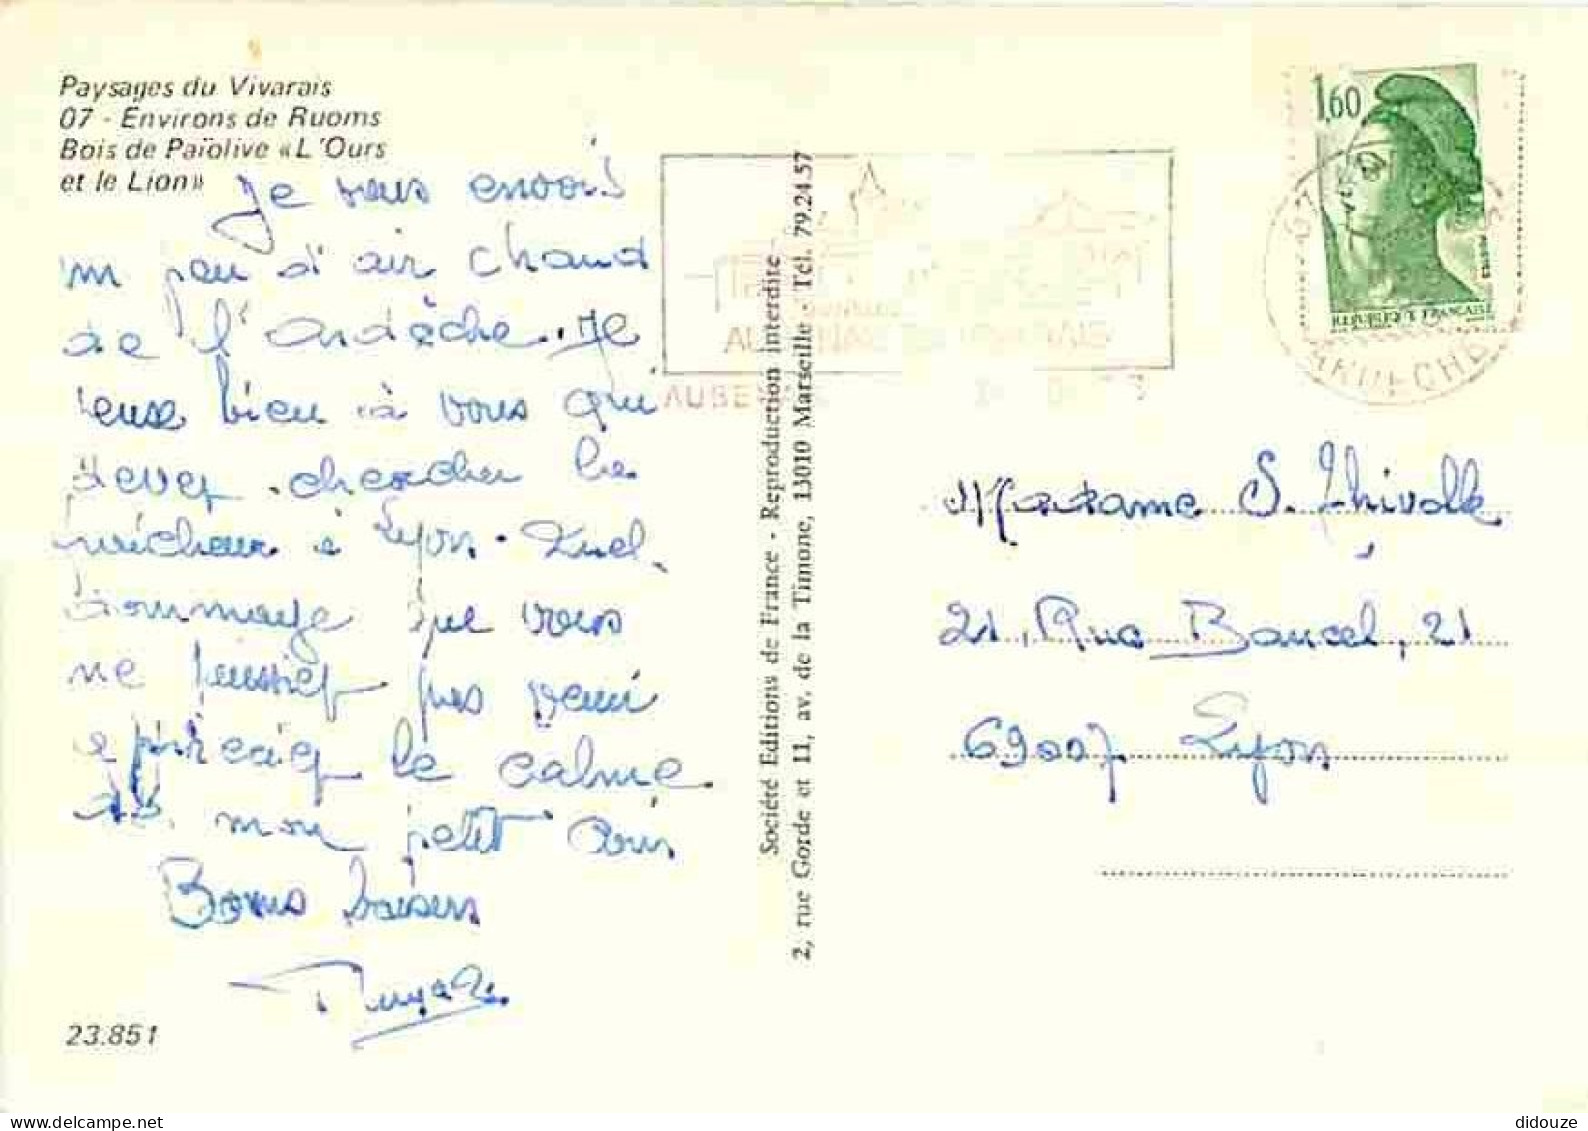 Paysages du Vivarais
07 - Environs de Ruoms
Bois de Païolive «L'Ours
et le Lion»
Je vous envois
un peu d'air chaud
de l'Ardèche. Je
pense bien à vous qui
devez chercher la
fraîcheur à Lyon. Quel
dommage que vous
ne puissiez pas venir
apprécier le calme
de mon petit coin
Bons baisers
23.851
Société Editions de France - Reproduction interdite
2, rue Gorde et 11, av. de la Timone, 13010 Marseille - Tél. 79.24.57
AUBENAS
1,60
REPUBLIQUE FRANÇAISE
ARDECHE
Madame S. Thivolle
21, Rue Bancel, 21
69007 Lyon
didouze